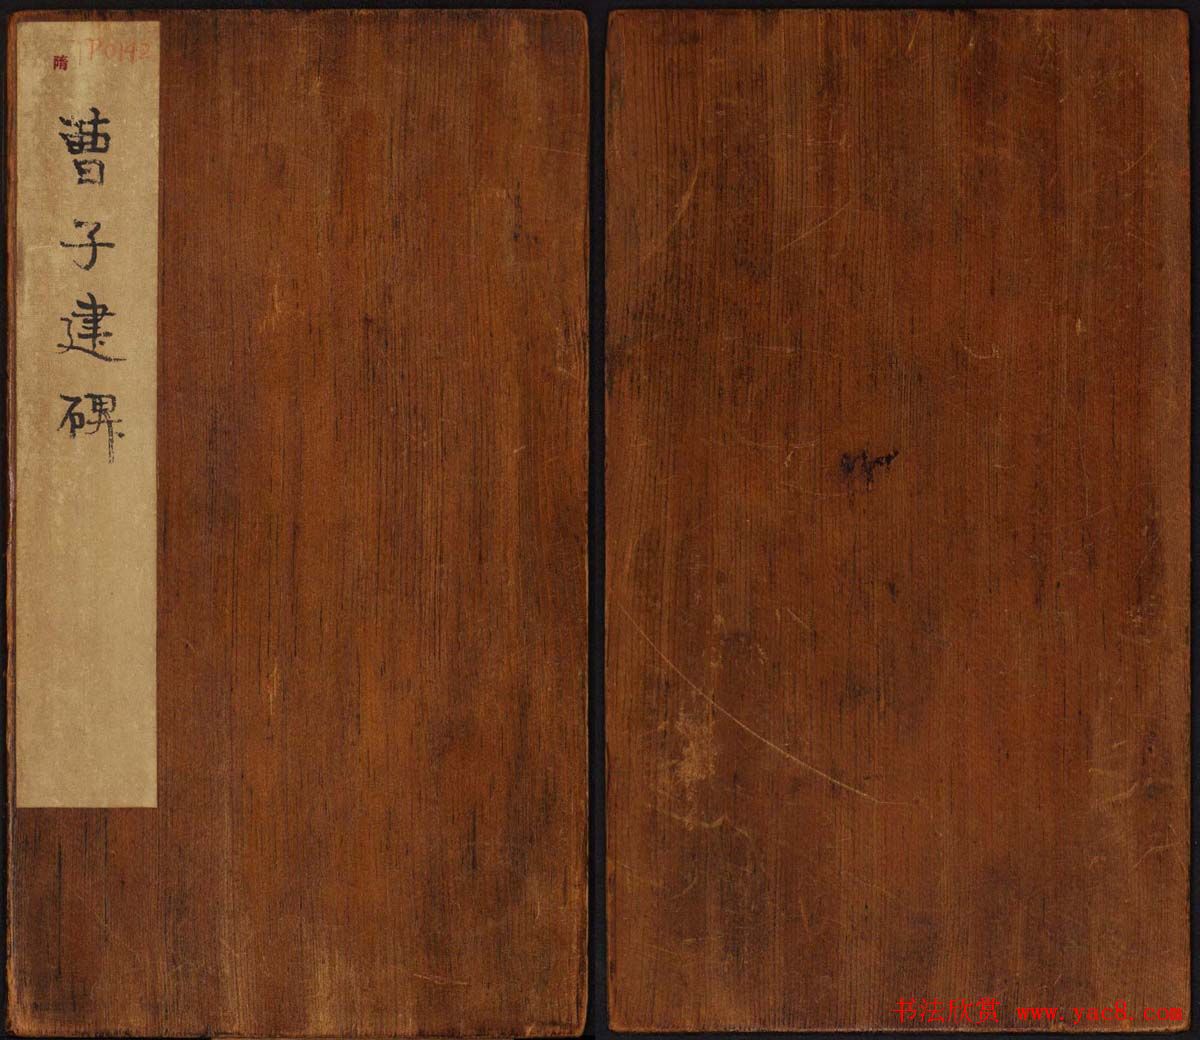 隋
P0142
曹子建碑
书法欣赏 www.yac8.com